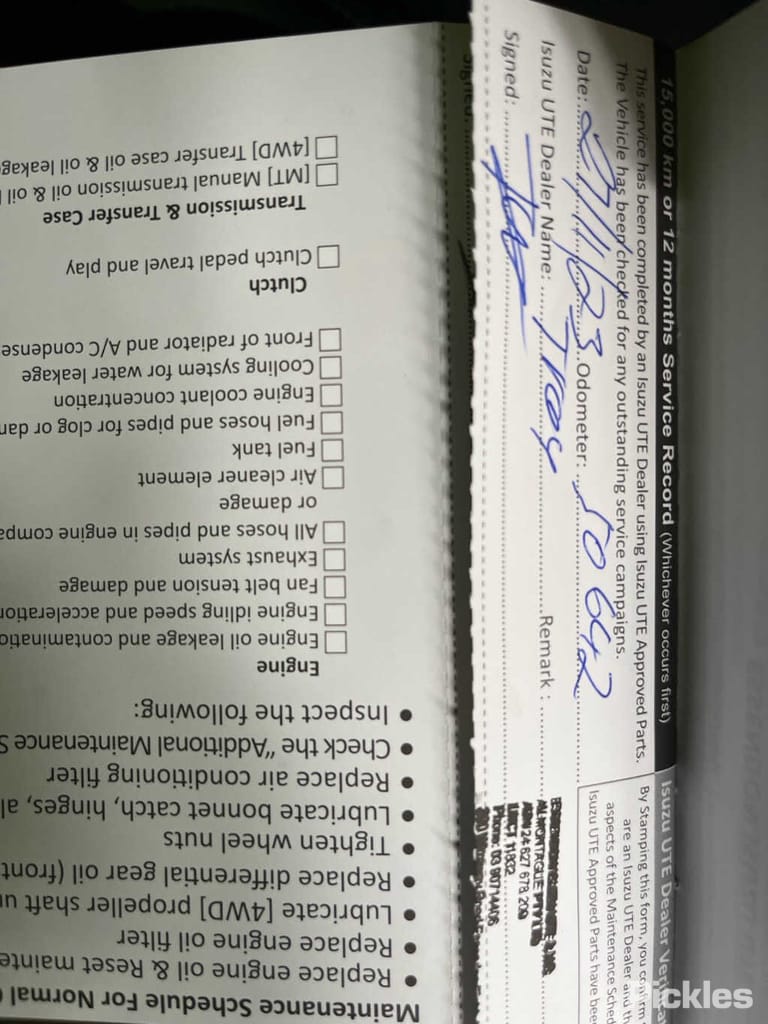 15,000 km or 12 months Service Record (Whichever occurs first)
This service has been completed by an Isuzu UTE Dealer using Isuzu UTE Approved Parts.
The Vehicle has been checked for any outstanding service campaigns.
Date: 27/11/23 Odometer: 50642
Isuzu UTE Dealer Name: Troy Remark :
Signed:
Isuzu UTE Dealer
By Stamping this form, you confirm
are an Isuzu UTE Dealer and th
aspects of the Maintenance Sched
Isuzu UTE Approved Parts have been
ALMONTAGUE PTY LTD
ABN 24 627 678 209
LMCT 11832
Phone: 03 90714406
Signed:
Maintenance Schedule For Normal
• Replace engine oil & Reset mainte
• Replace engine oil filter
• Lubricate [4WD] propeller shaft un
• Replace differential gear oil (front
• Tighten wheel nuts
• Lubricate bonnet catch, hinges, al
• Replace air conditioning filter
• Check the "Additional Maintenance S
• Inspect the following:
Engine
Engine oil leakage and contaminatio
Engine idling speed and acceleration
Fan belt tension and damage
Exhaust system
All hoses and pipes in engine compa
or damage
Air cleaner element
Fuel tank
Fuel hoses and pipes for clog or dam
Engine coolant concentration
Cooling system for water leakage
Front of radiator and A/C condense
Clutch
Clutch pedal travel and play
Transmission & Transfer Case
[MT] Manual transmission oil & oil l
[4WD] Transfer case oil & oil leakage
Pickles